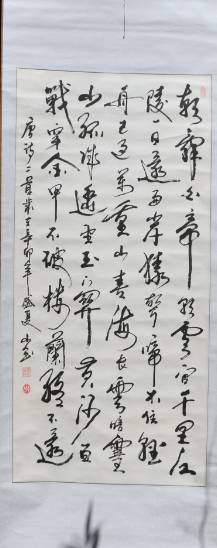 朝辭白帝彩雲間千里江
陵一日還兩岸猿聲啼不住輕
舟已過萬重山青海長雲暗雪
山孤城遙望玉門關黃沙百
戰穿金甲不破樓蘭終不還
唐詩二首歲在辛卯年盛夏